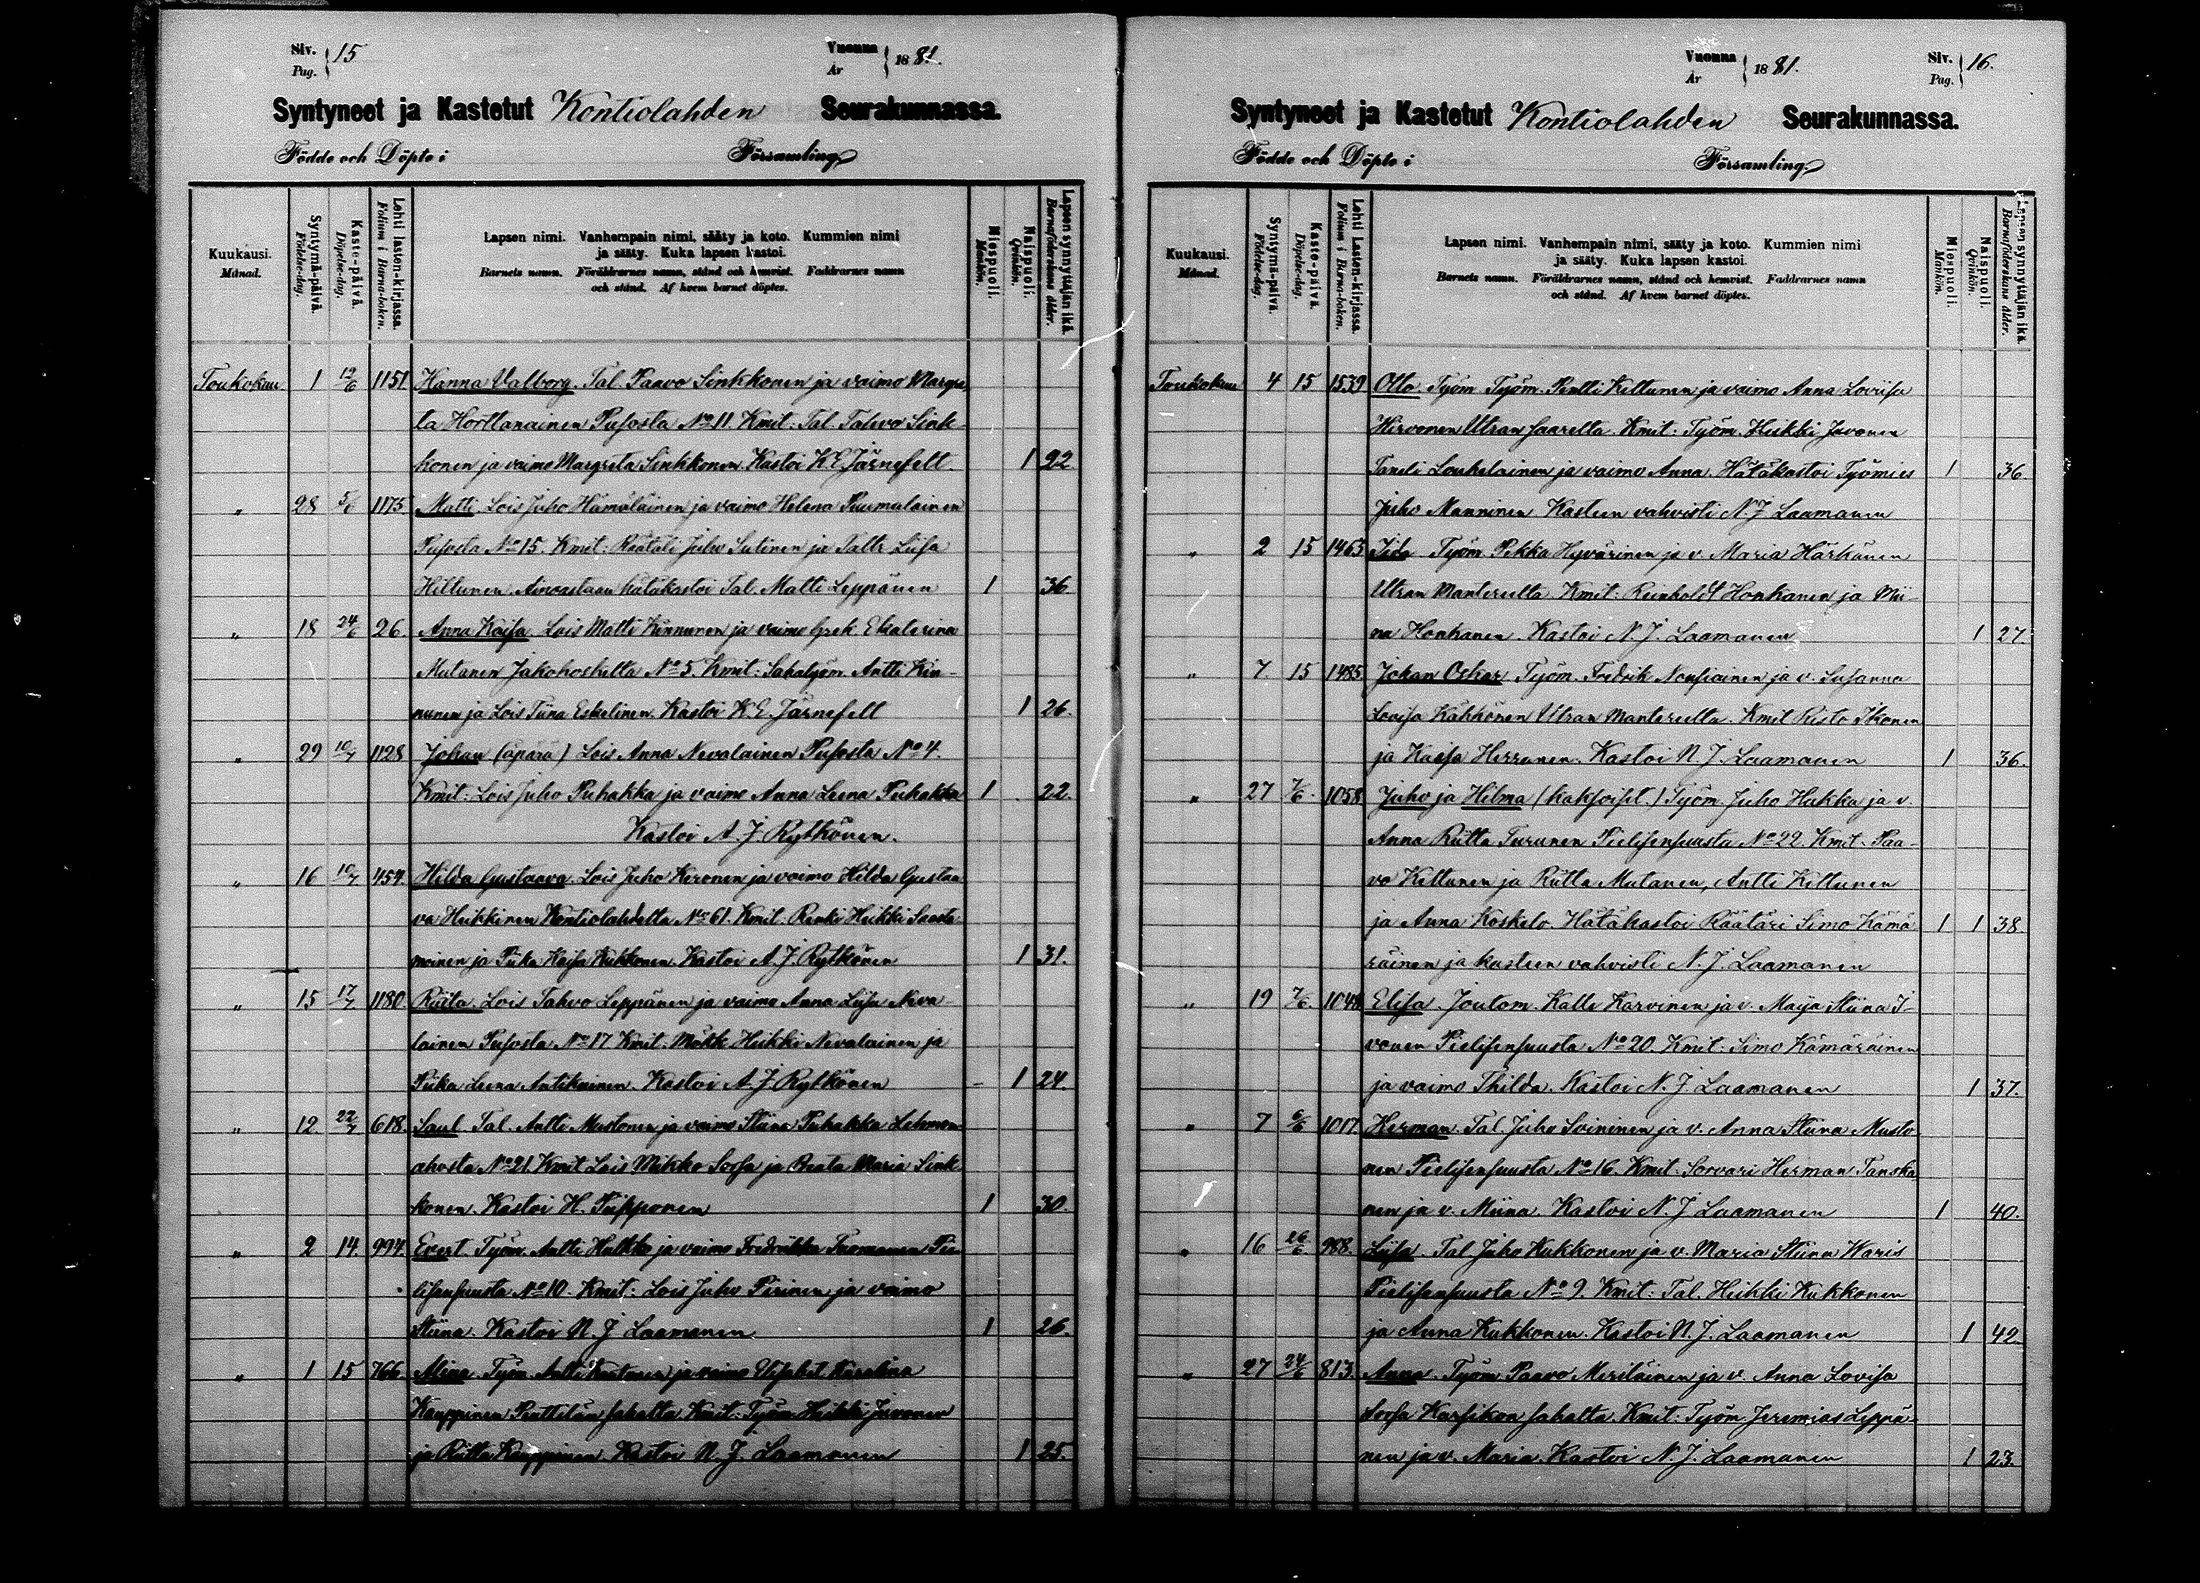 Siv. Pag. 15
Vuonna År 1881.
Syntyneet ja Kastetut Kontiolahden Seurakunnassa.
Födde och Döpte i Församling.
Kuukausi. Månad.
Syntymä-päivä. Födelse-dag.
Kaste-päivä. Döpelse-dag.
Lehti lasten-kirjassa. Folium i Barna-boken.
Lapsen nimi. Vanhempain nimi, sääty ja koto. Kummien nimi
ja sääty. Kuka lapsen kastoi.
Barnets namn. Föräldrarnes namn, stånd och hemvist. Faddrarnes namn
och stånd. Af hvem barnet döptes.
Miespuoli. Mankön.
Naispuoli. Qvinkön.
Lapsen synnyttäjän ikä. Barnaföderskans ålder.
Toukokuu 1 12/6 1151 Hanna Valborg. Tal. Paavo Sinkkonen ja vaimo Margre
ta Horttanainen Pusosta No 11. Kmit: Tal. Tahvo Sink
konen ja vaimo Margreta Sinkkonen. Kastoi K. E. Järnefelt. 1 22
" 28 5/6 1175 Matti. Lois Juho Hämäläinen ja vaimo Helena Puumalainen
Pusosta No 15. Kmit: Räätäli Juho Sutinen ja Taltr Liisa
Hiltunen. Ainoastaan hätäkastoi Tal. Matti Leppänen 1 36
" 18 24/6 26. Anna Kaisa. Lois Matti Kinnunen ja vaimo Grek. Ekaterina
Mutanen Jakokoskelta No 5. Kmit: Sahatyöm. Antti Kin-
nunen ja Lois Tiina Eskelinen. Kastoi K. E. Järnefelt 1 26.
" 29 10/7 1128 Johan (äpärä) Lois Anna Nevalainen Pusosta No 4.
Kmit: Lois Juho Puhakka ja vaimo Anna Leena Puhakka 1 22.
Kastoi A. J. Rytkönen.
" 16 10/7 454. Hilda Gustaava. Lois Juho Keronen ja vaimo Hilda Gustaa
va Heikkinen Kontiolahdelta No 61. Kmit: Renki Heikki Saasta
moinen ja Piika Kaisa Kukkonen. Kastoi A. J. Rytkönen 1 31.
" 15 17/7 1180 Riitta. Lois Tahvo Leppänen ja vaimo Anna Liisa Neva
lainen Pusosta No 17 Kmit: Mökk. Heikki Nevalainen ja
Piika Leena Antikainen. Kastoi A. J. Rytkönen 1 24.
" 12. 22/7 618. Saul. Tal. Antti Mustonen ja vaimo Stiina Puhakka Lehmon
ahosta No 21. Kmit Lois Mikko Sorsa ja Reata Maria Sink
konen. Kastoi H. Piipponen 1 30.
" 2 14. 994. Evert. Työm. Antti Hukka ja vaimo Fredrikka Tuomainen Pie
lisensuusta No 10. Kmit: Lois Juho Piirinen ja vaimo
Stiina. Kastoi N. J. Laamanen 1 26.
" 1 15 766. Työm. Antti ja vaimo Elisabet Karolina
Kauppinen Penttilän sahalta Kmit: Työm. Heikki Juvonen
ja Riitta Kauppinen. Kastoi N. J. Laamanen 1 25.
Vuonna År 1881.
Siv. Pag. 16.
Syntyneet ja Kastetut Kontiolahden Seurakunnassa.
Födde och Döpte i Församling.
Kuukausi. Månad.
Syntymä-päivä. Födelse-dag.
Kaste-päivä. Döpelse-dag.
Lehti Lasten-kirjassa. Folium i Barna-boken.
Lapsen nimi. Vanhempain nimi, sääty ja koto. Kummien nimi
ja sääty. Kuka lapsen kastoi.
Barnets namn. Föräldrarnes namn, stånd och hemvist. Faddrarnes namn
och stånd. Af hvem barnet döptes.
Miespuoli. Mankön.
Naispuoli. Qvinkön.
Lapsen synnyttäjän ikä. Barnaföderskans ålder.
Toukokuu 4 15 1539 Otto. Työm. Työm. Pentti Kettunen ja vaimo Anna Loviisa
Hirvonen Utran saarelta. Kmit: Työm. Heikki Juvonen
Taneli Louhelainen ja vaimo Anna. Hätäkastoi Työmies 1 36
Juho Manninen Kasteen vahvisti N. J. Laamanen
" 2 15 1463 Iida. Työm. Pekka Hyvärinen ja v. Maria Härkönen
Utran Mantereelta Kmit: Reinholdt Honkanen ja Mii-
na Honkanen. Kastoi N. J. Laamanen 1 27.
" 7. 15 1485 Johan Oskar. Työm. Fredrik Nousiainen ja v. Susanna
Lovisa Kähkönen Utran Mantereelta. Kmit Risto Ikonen
ja Kaisa Herranen. Kastoi N. J. Laamanen 1 36.
" 27 7/6. 1058 Juho ja Hilma (kaksoiset.) Työm. Juho Hukka ja v.
Anna Riitta Turunen Pielisensuusta No 22. Kmit. Paa-
vo Kettunen ja Riitta Mutanen, Antti Kettunen
ja Anna Koskelo. Hätäkastoi Räätäri Simo Kämä 1 1 38
räinen ja kasteen vahvisti N. J. Laamanen
" 19 7/6. 1048 Elisa. Joutom. Kalle Karvinen ja v. Maija Stiina I-
vonen Pielisensuusta No 20. Kmit: Simo Kämäräinen
ja vaimo Thilda. Kastoi N. J. Laamanen 1 37.
" 7 6/6 1017. Herman. Tal. Juho Soininen ja v. Anna Stiina Musto
nen Pielisensuusta No 16. Kmit. Sorvari Herman Tanska
nen ja v. Miina. Kastoi N. J. Laamanen 1 40.
" 16 26/6 988. Liisa. Tal. Juho Kukkonen ja v. Maria Stiina Waris
Pielisensuusta No 9. Kmit: Tal. Heikki Kukkonen
ja Anna Kukkonen. Kastoi N. J. Laamanen 1 42
" 27 24/6 813. Anna. Työm Paavo Meriläinen ja v. Anna Lovisa
Sorsa Karsikon sahalta. Kmit: Työm. Jeremias Leppä-
nen ja v. Maria. Kastoi N. J. Laamanen 1 23.